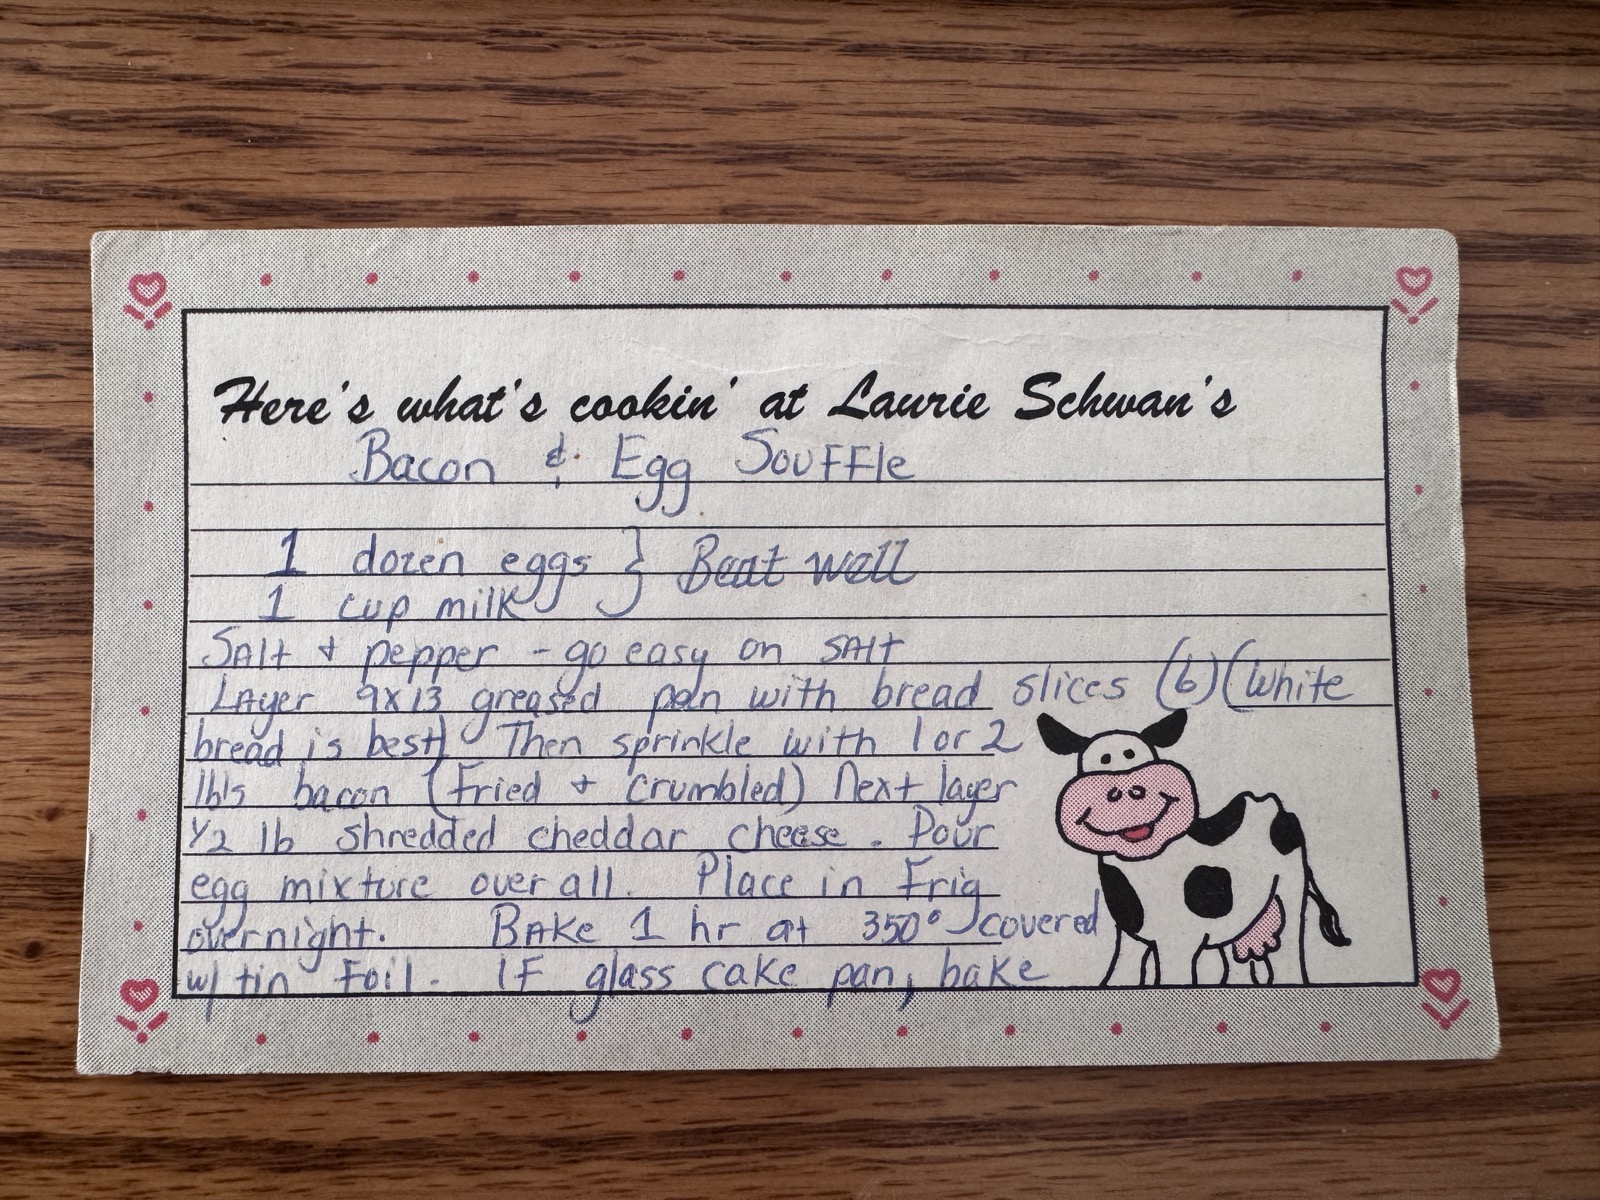 Here's what's cookin' at Laurie Schwan's
Bacon & Egg Souffle
1 dozen eggs } Beat well
1 cup milk
Salt + pepper - go easy on salt
Layer 9x13 greased pan with bread slices (6) (White
bread is best) Then sprinkle with 1 or 2
lb's bacon (Fried + crumbled) Next layer
1/2 lb shredded cheddar cheese. Pour
egg mixture over all. Place in Frig
overnight. Bake 1 hr at 350° covered
w/ tin Foil. IF glass cake pan, bake